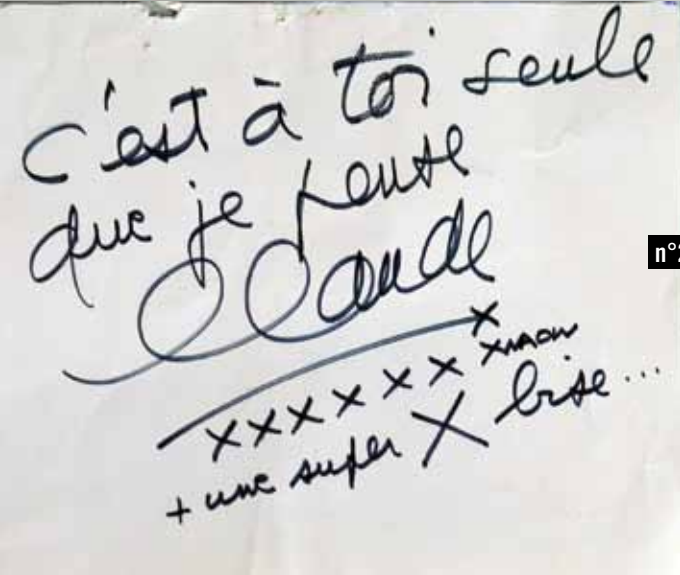 c'est à toi seule
que je pense
Claude
x
xmaow
xxxx x x x
+ une super X bise...
n°2